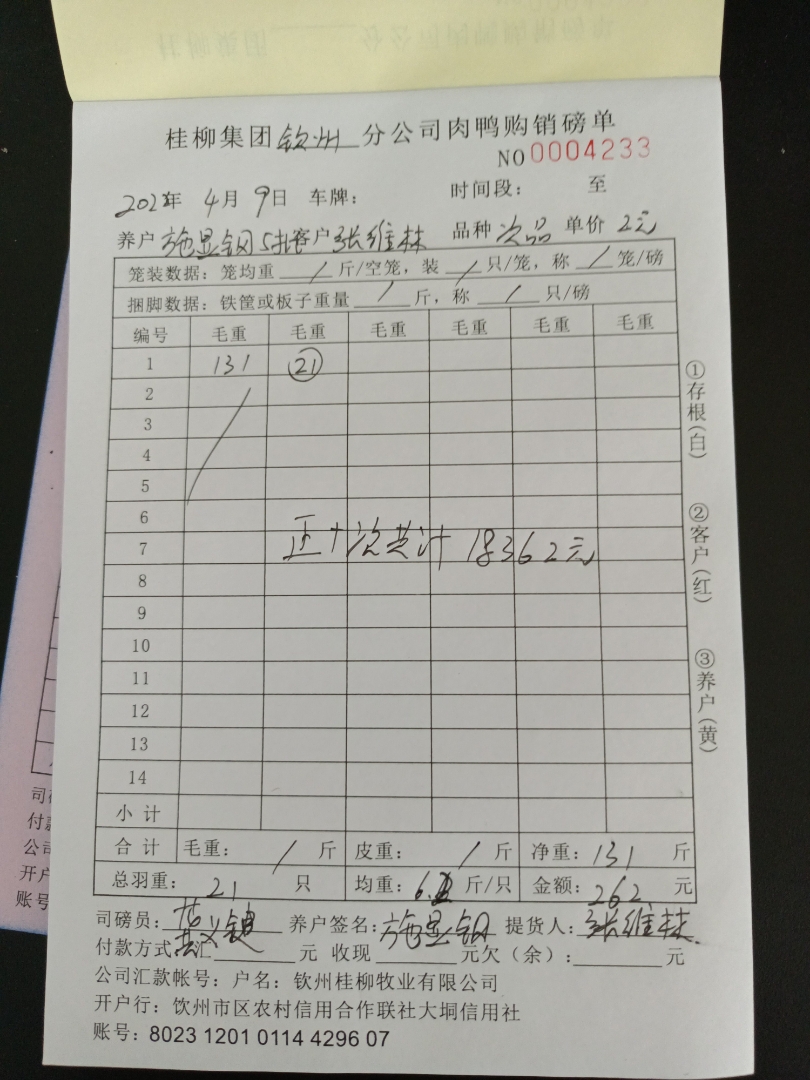 桂柳集团钦州分公司肉鸭购销磅单
NO 0004233
202 年 4月 9日 车牌: 时间段: 至
养户 施显钢 5批 客户 张维林 品种 次品 单价 2元
笼装数据: 笼均重 / 斤/空笼, 装 / 只/笼, 称 / 笼/磅
捆脚数据: 铁筐或板子重量 / 斤, 称 / 只/磅
编号 毛重 毛重 毛重 毛重 毛重 毛重
1 131 21
2
3
4
5
6
7
正+次共计 18362元
8
9
10
11
12
13
14
小计
合计 毛重: / 斤 皮重: / 斤 净重: 131 斤
总羽重: 21 只 均重: 6. 斤/只 金额: 262 元
司磅员: 养户签名: 施显钢 提货人: 张维林
付款方式: 汇 元 收现 元欠(余): 元
公司汇款帐号: 户名: 钦州桂柳牧业有限公司
开户行: 饮州市区农村信用合作联社大垌信用社
账号: 8023 1201 0114 4296 07
①存根(白)
②客户(红)
③养户(黄)
司
付
公
开户
账号